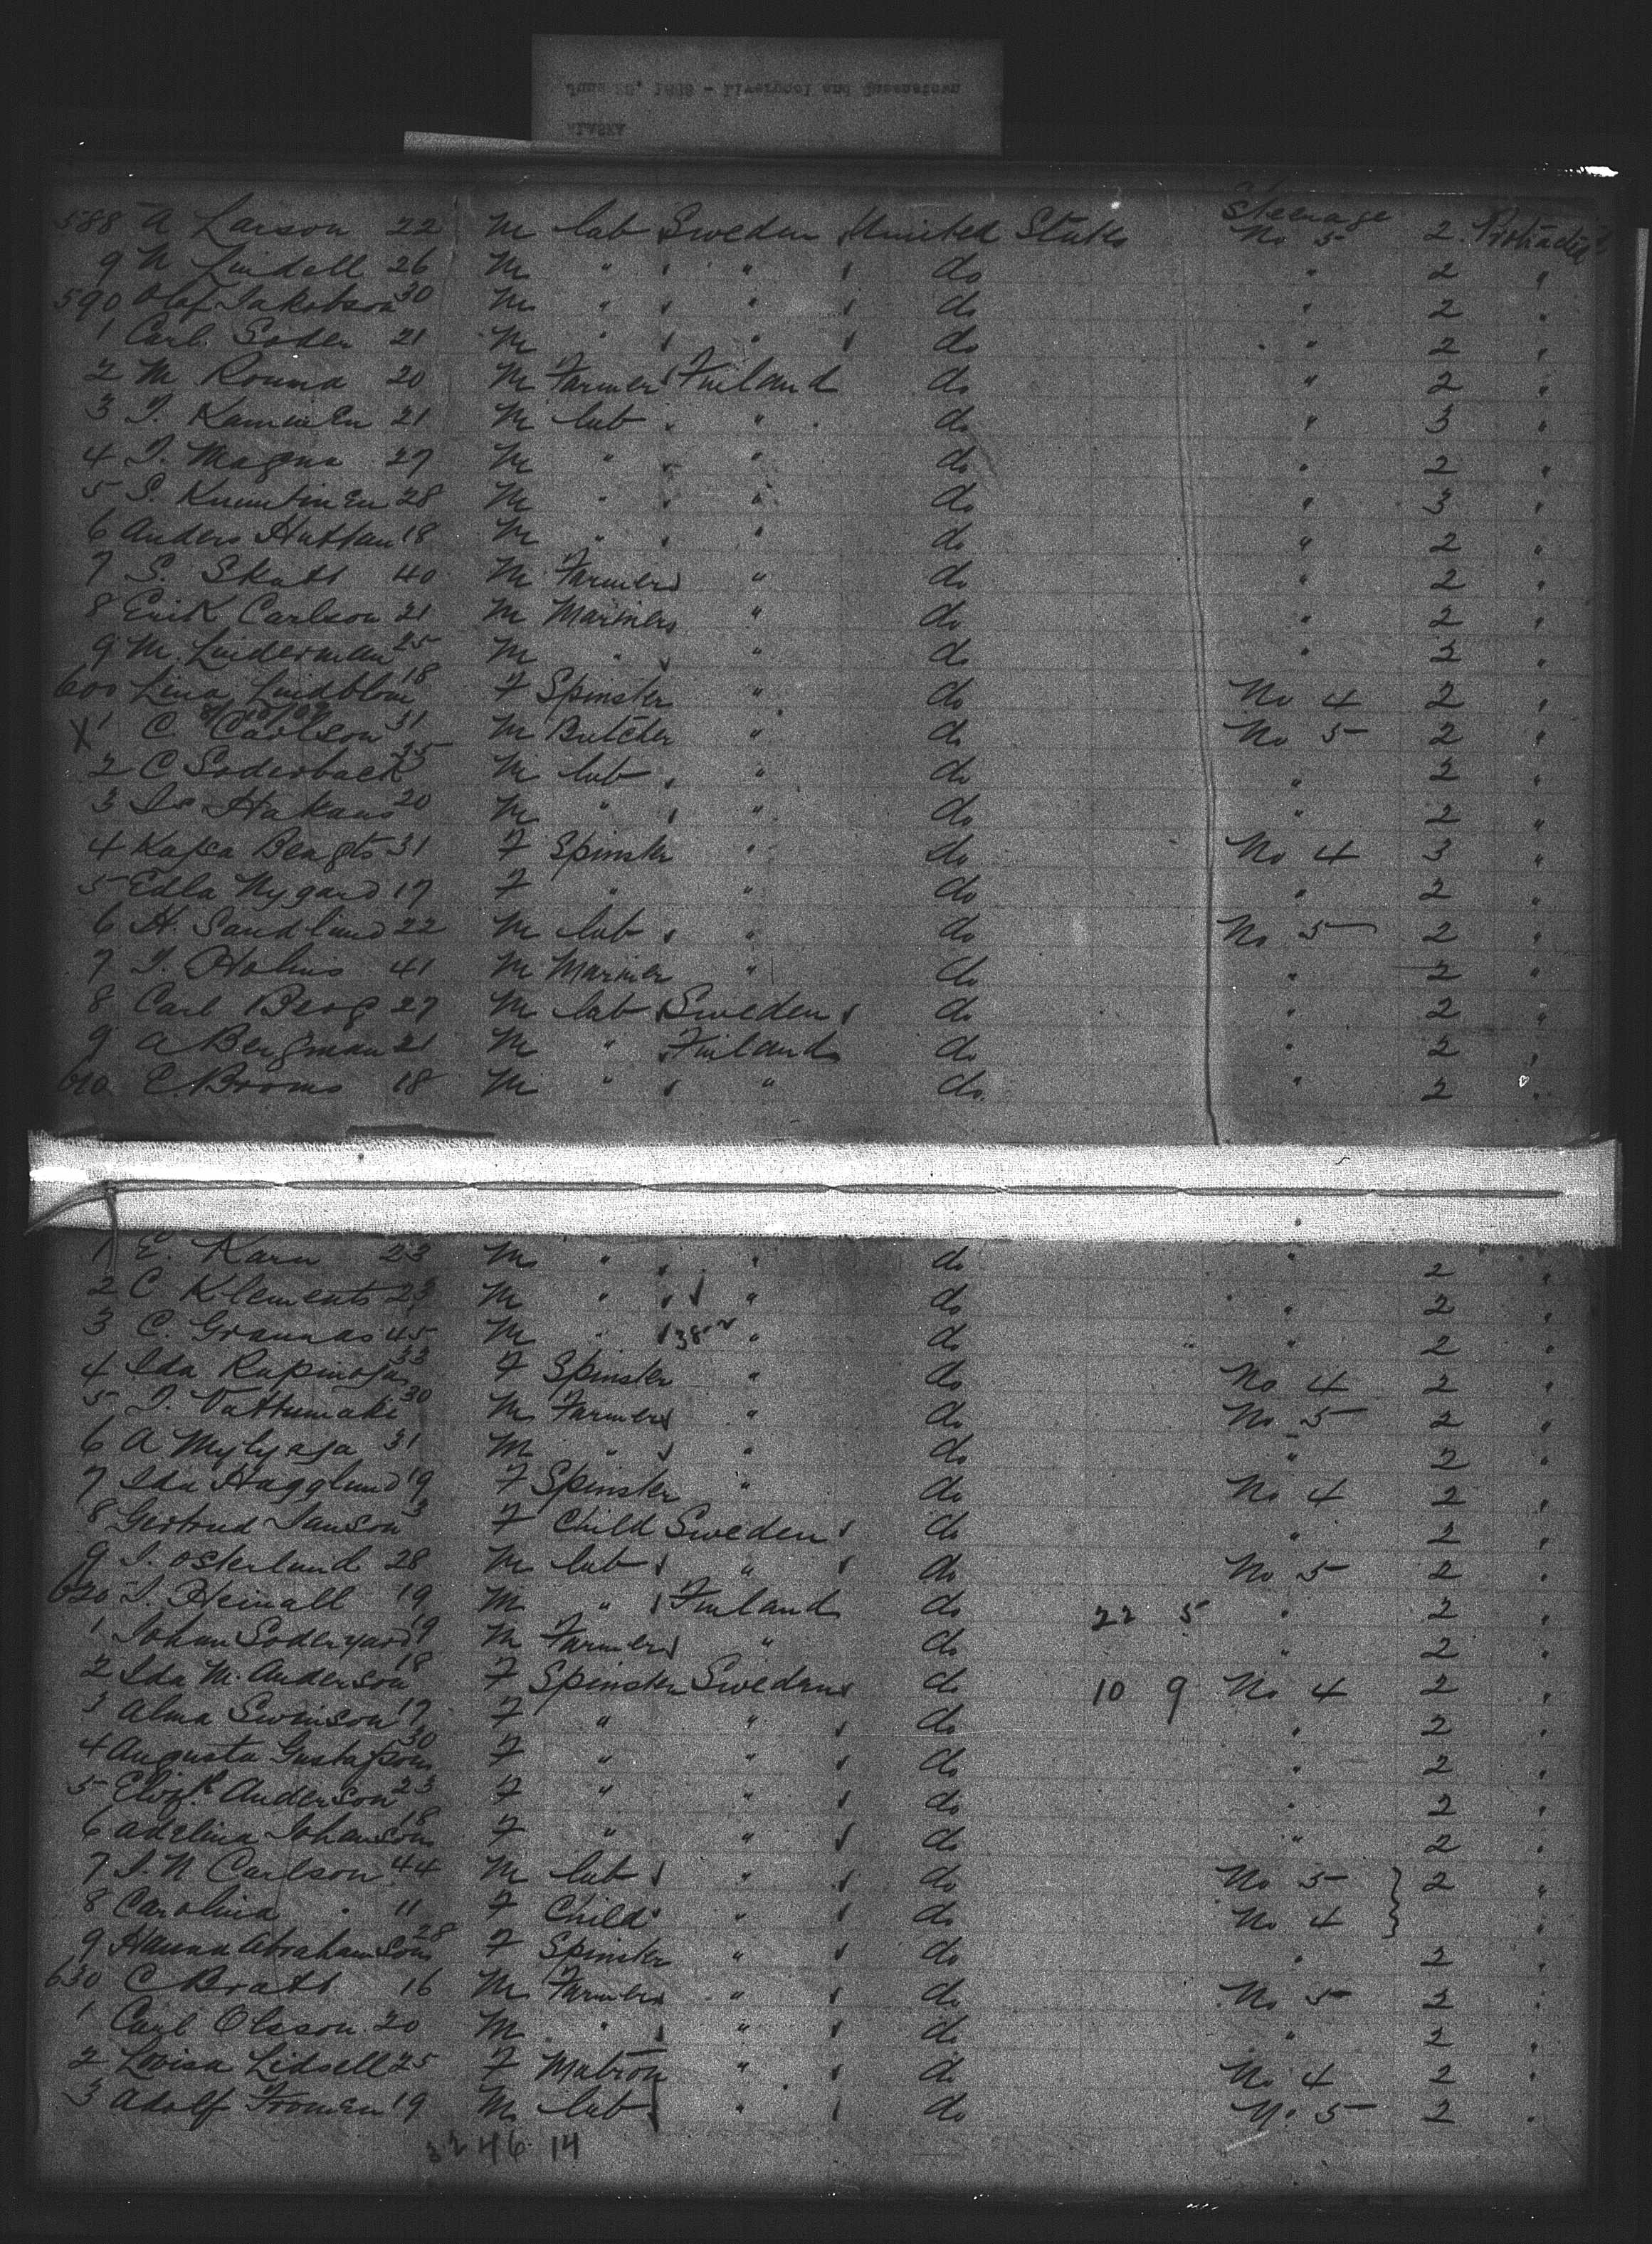 ALASKA
June 20, 1893 - Liverpool and Queenstown
Steerage
588 A Larson 22 M lab Sweden United States No 5 2 Protracted
9 N Lindell 26 M " " do " 2 "
590 Olof Jakobson 30 M " " do " 2 "
1 Carl Soder 21 M " " do " 2 "
2 M Rouma 20 M Farmer Finland do " 2 "
3 I. Kaminen 21 M lab " do " 3 "
4 I. Magna 27 M " " do " 2 "
5 S. 28 M " " do " 3 "
6 Anders Huttan 18 M " " do " 2 "
7 S. Skatt 40 M Farmer " do " 2 "
8 Erik Carlson 21 M Mariner " do " 2 "
9 M. Linderman 25 M " " do " 2 "
600 Lina Lindblom 18 F Spinster " do No 4 2 "
X 1 C. Carlson 31 M Butcher " do No 5 2 "
2 C Soderback 35 M lab " do " 2 "
3 Is Hakans 20 M " " do " 2 "
4 Kajsa Bengts 31 F Spinster " do No 4 3 "
5 Edla Nygard 17 F " " do " 2 "
6 H. Sandlund 22 M lab " do No 5 2 "
7 I. Holms 41 M Mariner " do " 2 "
8 Carl Berg 27 M lab Sweden do " 2 "
9 A Bergman 21 M " Finland do " 2 "
610 C. Brooms 18 M " " do " 2 "
1 E. Karn 23 M " " do " 2 "
2 C Klements 23 M " " do " 2 "
3 C. Grannas 45 M " " do " 2 "
4 Ida Rapinoja 33 F Spinster " do No 4 2 "
5 I. Vattumaki 30 M Farmer " do No 5 2 "
6 A Mylyaja 31 M " " do " 2 "
7 Ida Hagglund 19 F Spinster " do No 4 2 "
8 Gertrud Janson 3 F Child Sweden do " 2 "
9 I. Osterlund 28 M lab " do No 5 2 "
620 I. Heinall 19 M " Finland do 22 5 " 2 "
1 Johan Sodergard 19 M Farmer " do " 2 "
2 Ida M. Anderson 18 F Spinster Sweden do 10 9 No 4 2 "
3 Alma Swinson 17 F " " do " 2 "
4 Augusta Gustafson 30 F " " do " 2 "
5 Elizh Anderson 23 F " " do " 2 "
6 Adelina Johanson 18 F " " do " 2 "
7 I. N Carlson 44 M lab " do No 5 2 "
8 Carolina " 11 F Child " do No 4 "
9 Hanna Abrahamson 28 F Spinster " do " 2 "
630 C Bratt 16 M Farmer " do No 5 2 "
1 Carl Olsson 20 M " " do " 2 "
2 Lovisa Lidsell 25 F Matron " do No 4 2 "
3 Adolf Fromen 19 M lab " do No 5 2 "
32 46 14